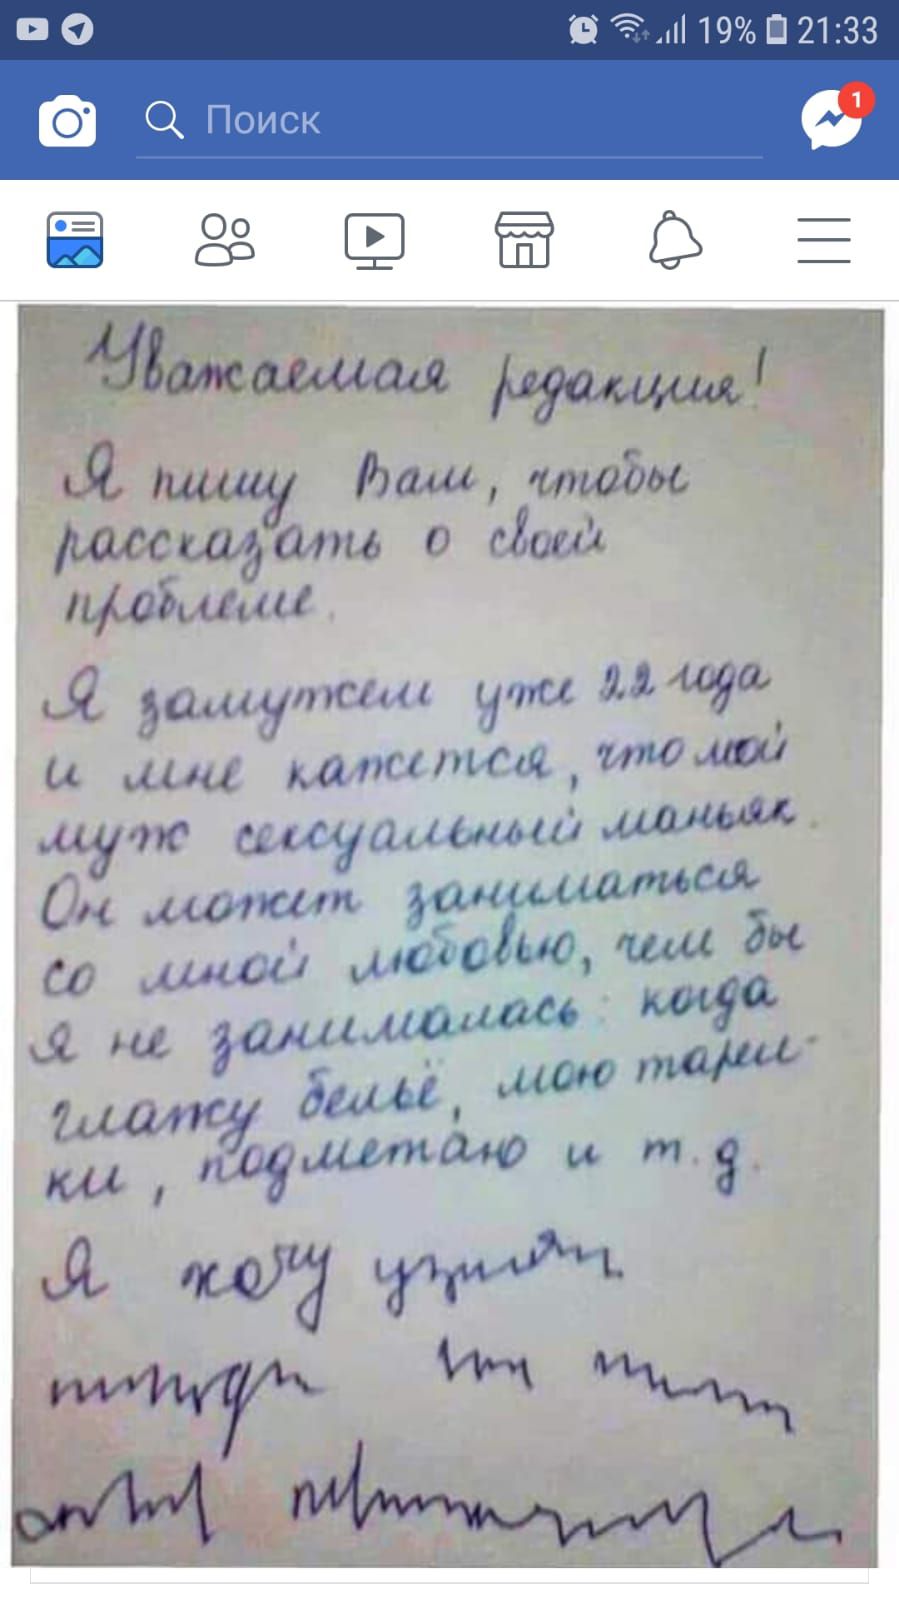 19% 21:33
Поиск
1
Уважаемая редакция!
Я пишу Вам, чтобы
рассказать о своей
проблеме.
Я замужем уже 22 года
и мне кажется, что мой
муж сексуальный маньяк.
Он может заниматься
со мной любовью, чем бы
я не занималась: когда
глажу бельё, мою тарел-
ки, подметаю и т.д.
Я хочу